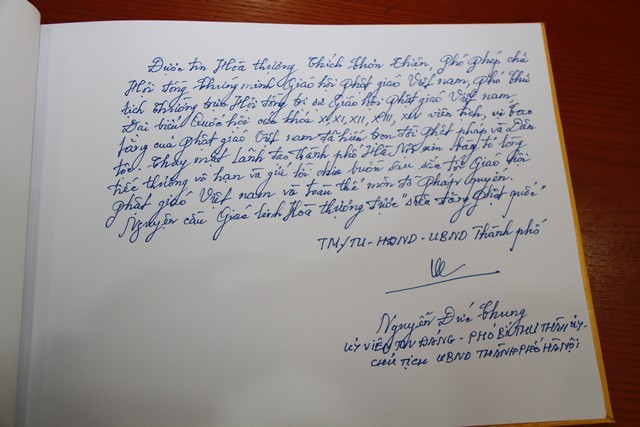 Được tin Hòa thượng Thích Thiện, Phó pháp chủ
Hội đồng chứng minh Giáo hội Phật giáo Việt nam, Phó chủ
tịch thường trực Hội đồng trị sự Giáo hội Phật giáo Việt Nam
Đại biểu Quốc hội các khóa X, XI, XII, XIII, XIV viên tịch, vị cao
tăng của phật giáo Việt nam đã hiến trọn đời phật pháp và Dân
tộc. Thay mặt Lãnh đạo thành phố Hà Nội xin bày tỏ lòng
tiếc thương vô hạn và gửi lời chia buồn sâu sắc tới Giáo hội
phật giáo Việt nam và toàn thể môn đồ pháp quyến.
Nguyện cầu Giác linh Hòa thượng được "siêu đăng phật quốc"
TM/TU-HĐND-UBND Thành phố
Nguyễn Đức Chung
ỦY VIÊN TW ĐẢNG - PHÓ BÍ THƯ THÀNH ỦY-
CHỦ TỊCH UBND THÀNH PHỐ HÀ NỘI